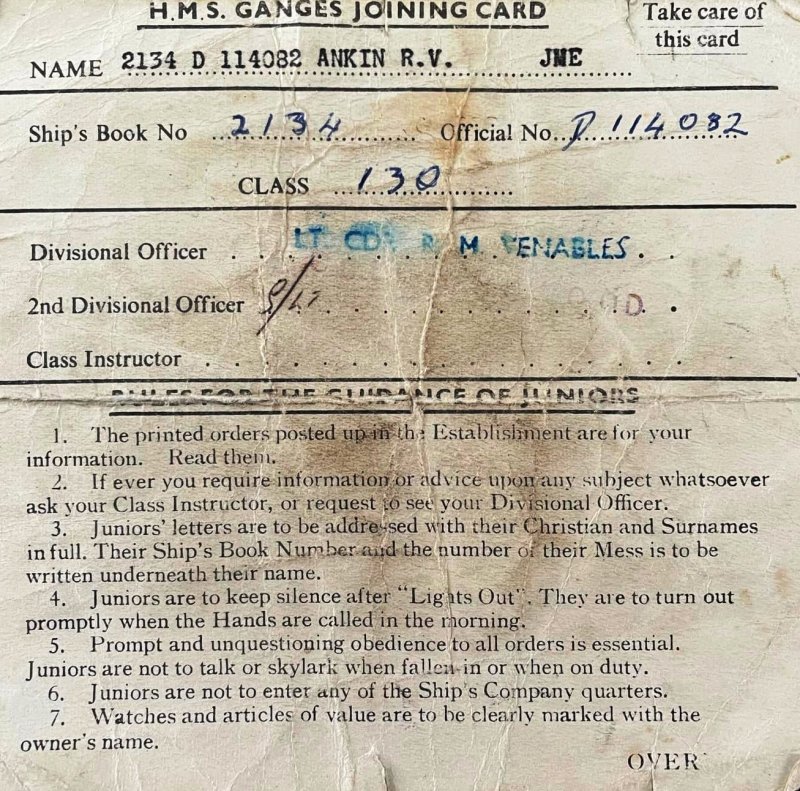 H.M.S. GANGES JOINING CARD
Take care of
this card
NAME 2134 D 114082 ANKIN R.V. JME
Ship's Book No 2134 Official No. D 114082
CLASS 130
Divisional Officer LT. CDR R. M. VENABLES
2nd Divisional Officer
Class Instructor
RULES FOR THE GUIDANCE OF JUNIORS
1. The printed orders posted up in the Establishment are for your
information. Read them.
2. If ever you require information or advice upon any subject whatsoever
ask your Class Instructor, or request to see your Divisional Officer.
3. Juniors' letters are to be addressed with their Christian and Surnames
in full. Their Ship's Book Number and the number of their Mess is to be
written underneath their name.
4. Juniors are to keep silence after "Lights Out". They are to turn out
promptly when the Hands are called in the morning.
5. Prompt and unquestioning obedience to all orders is essential.
Juniors are not to talk or skylark when fallen-in or when on duty.
6. Juniors are not to enter any of the Ship's Company quarters.
7. Watches and articles of value are to be clearly marked with the
owner's name.
OVER